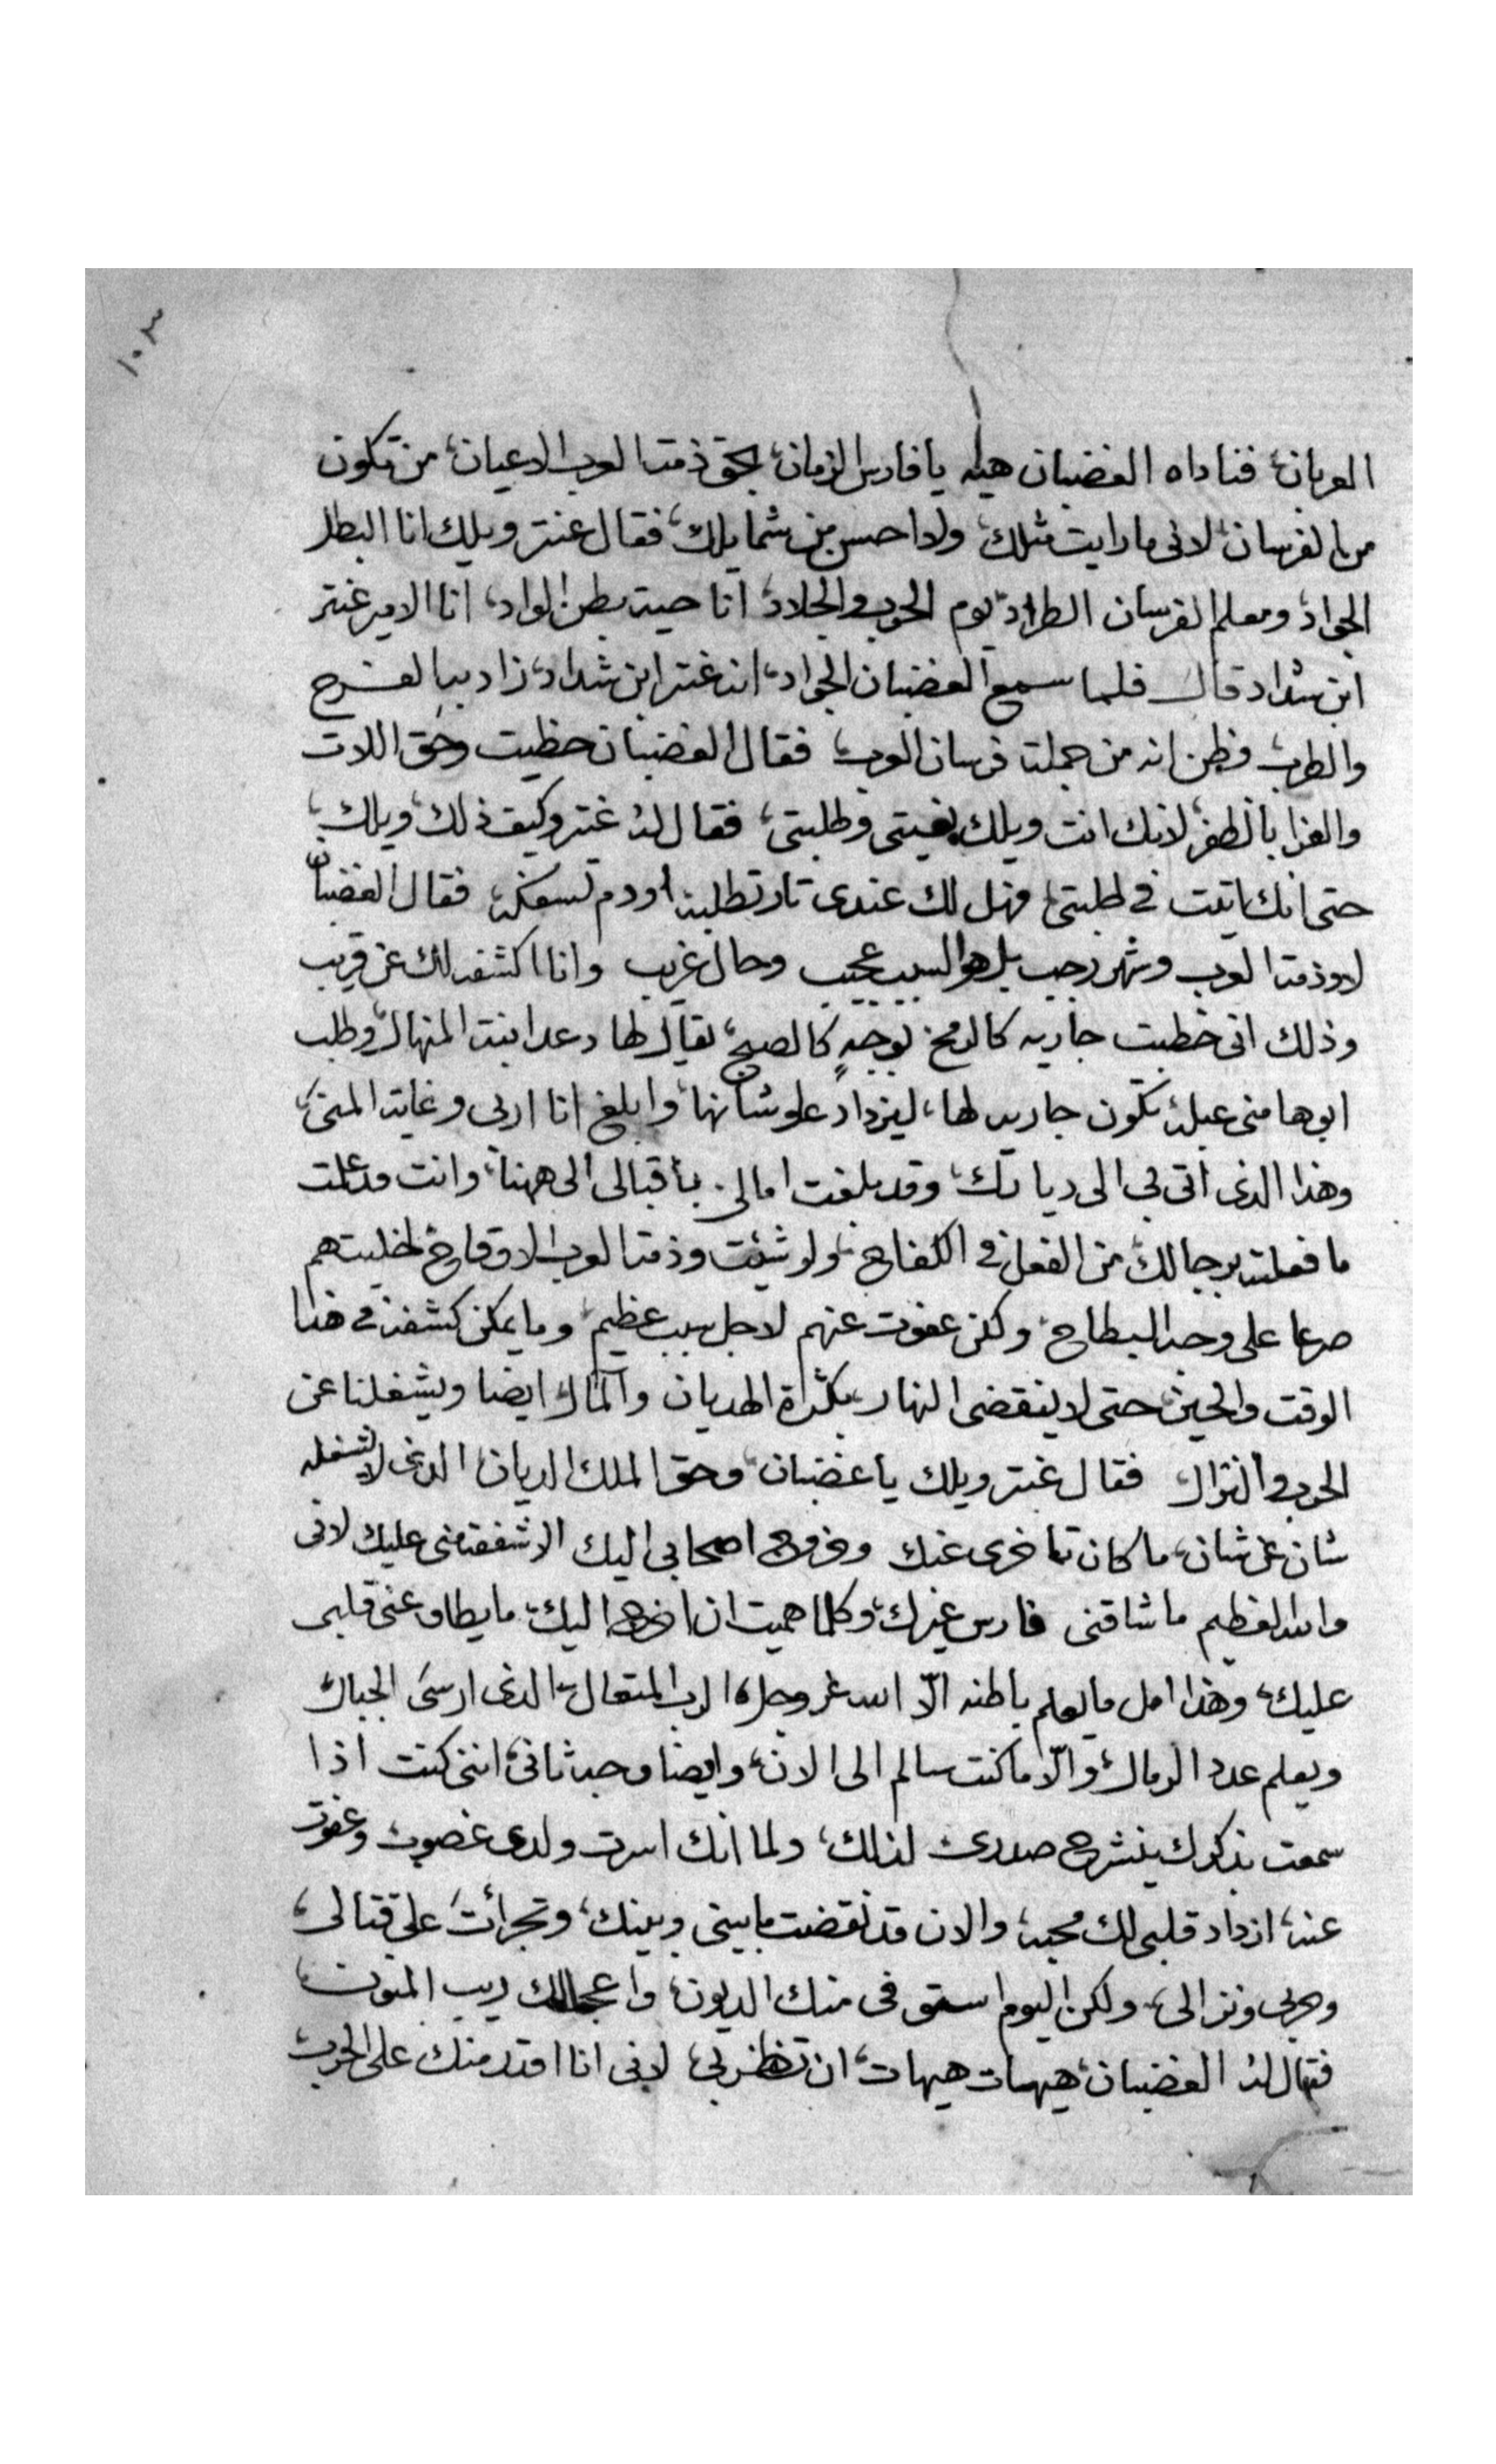 ١٠٣
العربان، فناداه الغضبان هيله يا فارس الزمان، بحق ذمة العرب الاعيان، من تكون
من الفرسان، لانى ما رايت مثلك، ولا احسن من شمايلك، فقال عنتر ويلك انا البطل
الجواد، ومعلم الفرسان الطراد، يوم الحرب والجلاد، انا حية بطن الواد، انا الامير عنتر
ابن شداد قال فلما سمع الغضبان الجواد، انه عنتر ابن شداد، زاد به الفرح
والطرب، وظن انه من جملة فرسان العرب، فقال الغضبان حظيت وحق اللات
والعزا بالظفر، لانك انت ويلك بغيتى وطلبتى، فقال له عنتر وكيف ذلك، ويلك،
حتى انك اتيت فى طلبتى، فهل لك عندى تار تطلبه، او دم تسفكه، فقال الغضبان
لا وذمة العرب وشهر رجب بل هو السبب عجيب وحال غريب وانا اكشفه لك عن قريب
وذلك انى خطبت جاريه كالرمح، بوجهٍ كالصبح، يقال لها دعد ابنة المنهال، وطلب
ابوها منى عبلة، تكون جاريه لها، ليزداد علو شانها، وابلغ انا اربى وغاية المنى،
وهذا الذى اتى بى الى ديارك، وقد بلغت امالى، باقبالى الى ههنا، وانت قد علمت
ما فعلت برجالك، من الفعل فى الكفاح، ولو شئت وذمة العرب الاوقاح، لخليتهم
صرعا على وجه البطاح، ولكن عفوت عنهم لاجل سبب عظيم، وما يمكن كشفه فى هذا
الوقت والحين، حتى لا ينقضى النهار، بكثرة الهديان والمال ايضا ويشغلنا عن
الحرب والنزال فقال عنتر ويلك يا غضبان، وحق الملك الديان، الذى لا يشغله
شان عن شان، ما كان تاخرى عنك وخروج اصحابى اليك الا شفقة منى عليك لانى
والله العظيم ما شاقنى فارس غيرك، وكلما هميت ان اخرج اليك، ما يطاوعنى قلبى
عليك، وهذا امل ما يعلم باطنه الّا الله عز وجل، الرب المتعال، الذى ارسىَ الجبال
ويعلم عدد الرمال، والّا ما كنت سالم الى الان، وايضا وجه ثانى، اننى كنت اذا
سمعت بذكرك ينشرح صدرى لذلك، ولما انك اسرت ولدى غصوب وعفوت
عنه، ازداد قلبى لك محبه، والان قد نقضت ما بينى وبينك، وتجرأتَ على قتالى،
وحربى ونزالى، ولكن اليوم استوفى منك الديون، واعجل لك ريب المنون،
فقال له الغضبان، هيهات هيهات، ان تظفر بى، لانى انا اقدر منك على الحرب